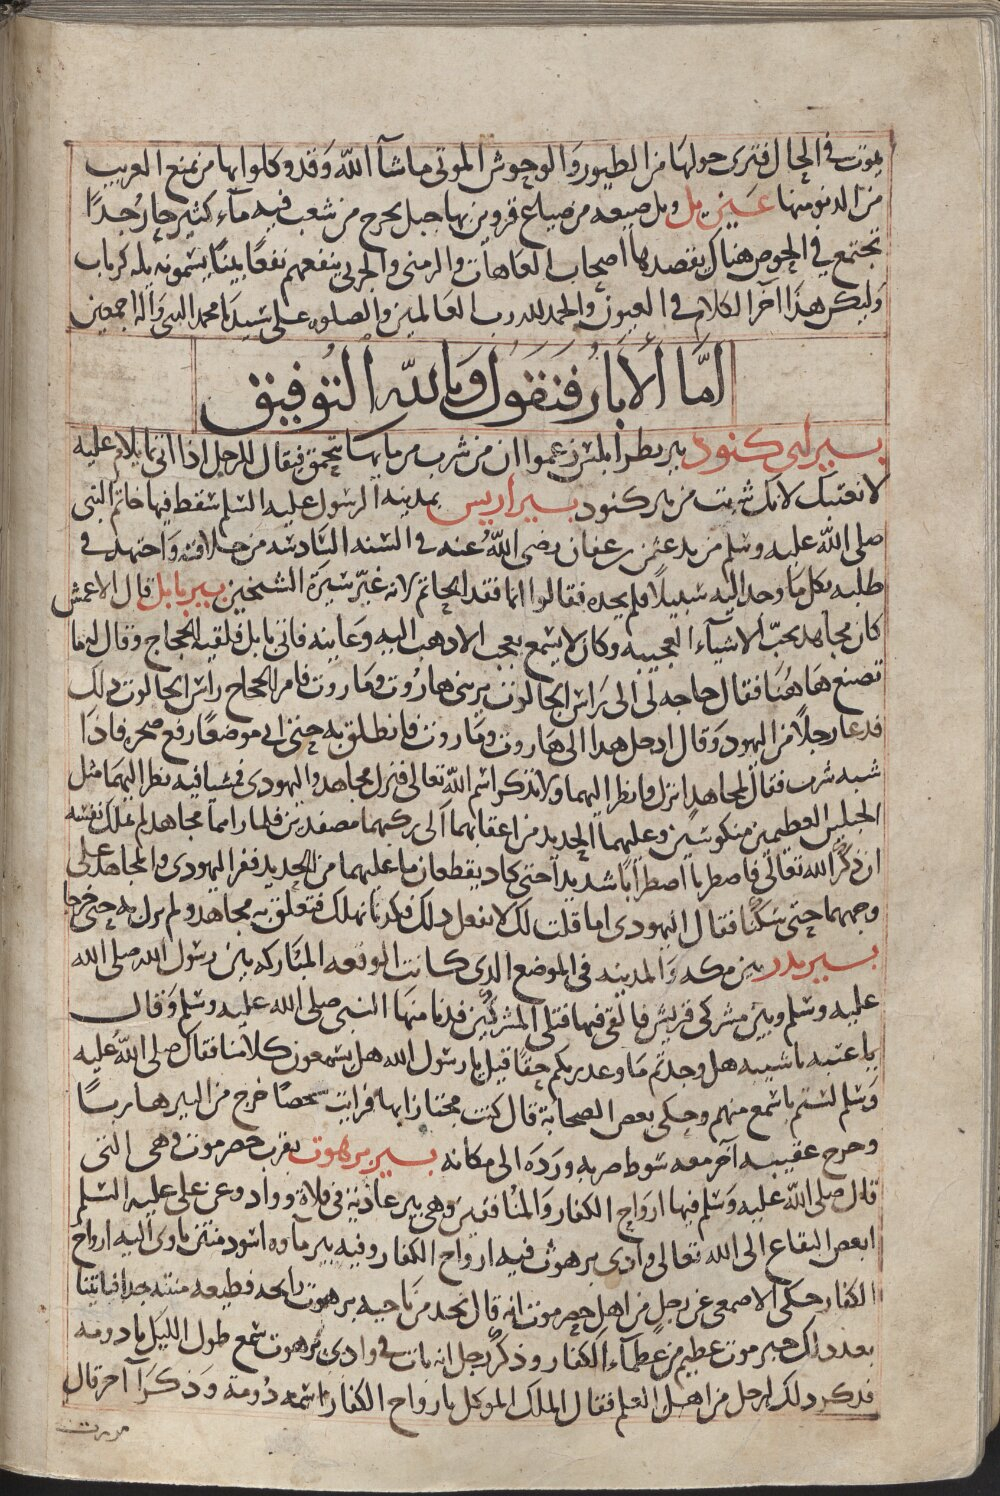 يموت في الحال فترى حولها من الطيور والوحوش الموتى ماشآ الله وقد وكلوا بها من يمنع الغريب
من الدنو منها عين يل ويل ضيعه من ضياع قزوين بها جبل يخرج من شعب فيه مآء كثير حار جدًا
تجتمع في الحوض هناك يقصدها اصحاب العاهات والزمنى والجربى ينفعهم نفعًا بينًا يسمونه يله كرماب
وليكن هذا اخر الكلام في العيون والحمد لله رب العالمين والصلوه على سيدنا محمد النبي واله اجمعين
اما الابار فنقول وبالله التوفيق
بير ابي كنود بير بطرابلس زعموا ان من شرب من مايها يتحمق فيقال للرجل اذا اتى بما يلام عليه
لا نعتبك لانك شربت من بير كنود بير أريس بمدينه الرسول عليه السلم سقط فيها خاتم النبى
صلى الله عليه وسلم من يد عثمن بن عفان رضى الله عنه في السنه السادسه من خلافته واجتهد في
طلبه بكل ما وجد اليه سبيلًا فلم يجده فقالوا انما فقد الخاتم لانه غيّر سيرة الشيخين بير بابل قال الاعمش
كان مجاهد يحب الاشيآء العجيبه وكان لا يسمع بعجب الا ذهب اليه وعاينه فاتى بابل فلقيه الحجاج وقال له ما
تصنع هاهنا فقال حاجه لى الى راس الجالوت يرينى هاروت وماروت فامر الحجاج راس الجالوت بذلك
فدعا رجلًا من اليهود وقال ادخل هدا الى هاروت وماروت فانطلق به حتى اتى موضعًا رفع صخره فاذا
شبه سرب فقال لمجاهد انزل وانظر اليهما ولا تذكر اسم الله تعالى فنزل مجاهد واليهودى فمشيا فيه نظر اليهما مثل
الجبلين العظيمين منكوسين وعليهما الحديد من اعقابهما الى ركبهما مصفدين فلما راهما مجاهد لم يملك نفسه
ان ذكر الله تعالى فاضطربا اضطرابًا شديدًا حتى كاد يقطعان ما عليهما من الحديد ففر اليهودى والمجاهد على
وجههما حتى سكنا فقال اليهودى اما قلت لك لا تفعل ذلك فكدنا نهلك فتعلق به مجاهد ولم يزل به حتى خرجا
بير بدر بين مكه والمدينه في الموضع الدى كانت الوقعه المباركه بين رسول الله صلى الله
عليه وسلم وبين مشركى قريش فالقى فيها قتلى المشركين فدنا منها النبى صلى الله عليه وسلم وقال
يا عتبه يا شيبه هل وجدتم ما وعد ربكم حقًا قيل يا رسول الله هل يسمعون كلامنا فقال صلى الله عليه
وسلم لستم باسمع منهم وحكى بعض الصحابة قال كنت مجتازا بها فرايت شخصًا خرج من البير هاربًا
وخرج عقيبه آخر معه سوط ضربه ورده الى مكانه بير برهوت بقرب حضرموت وهى التى
قال صلى الله عليه وسلم فيها ارواح الكفار والمنافقين وهى بير عاديه في فلاة وواد وعن على عليه السلم
ابغض البقاع الى الله تعالى وادى برهوت فيه ارواح الكفار وفيه بير مآوه اسود منتن ياوى اليه ارواح
الكفار حكى الاصمعى عن رجل من اهل حضرموت انه قال نجد من ناحيه برهوت رايحه فظيعه منتنه جدا فياتينا
بعد ذلك خبر موت عظيم من عظمآء الكفار وذكر رجل انه بات في وادى برهوت سمع طول الليل يا دومه
فذكر ذلك لرجل من اهل العلم فقال الملك الموكل بارواح الكفار اسمه دومة وذكر آخر قال